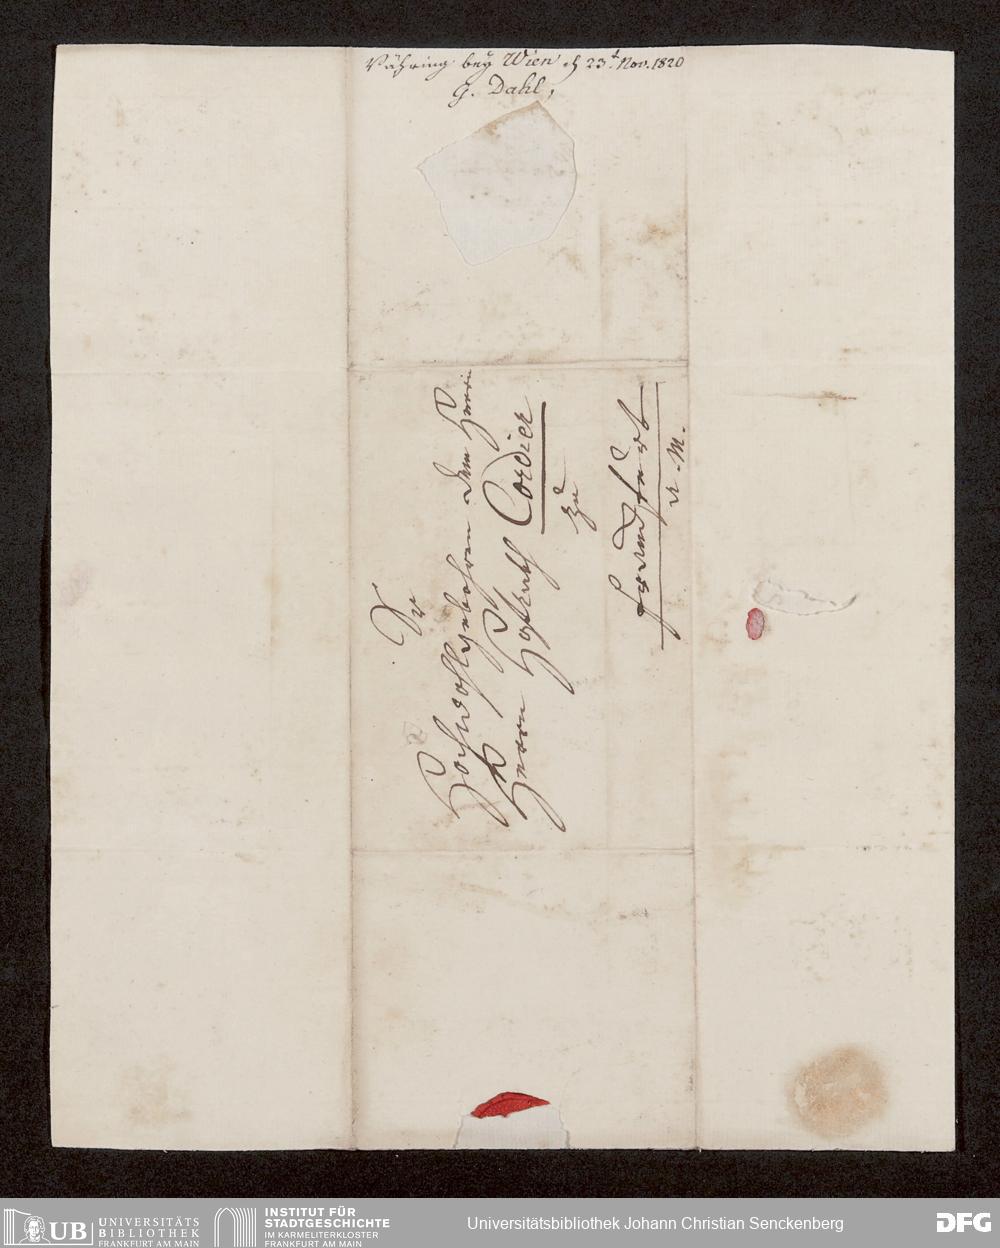 Währing bey Wien d 23t. Nov. 1820
G. Dahl,
Sr
Hochwohlgebohren dem Herrn
Herrn Hofrath Cordier
zu
Frankfurt
a. M.
UB
UNIVERSITÄTS
BIBLIOTHEK
FRANKFURT AM MAIN
INSTITUT FÜR
STADTGESCHICHTE
IM KARMELITERKLOSTER
FRANKFURT AM MAIN
Universitätsbibliothek Johann Christian Senckenberg
DFG